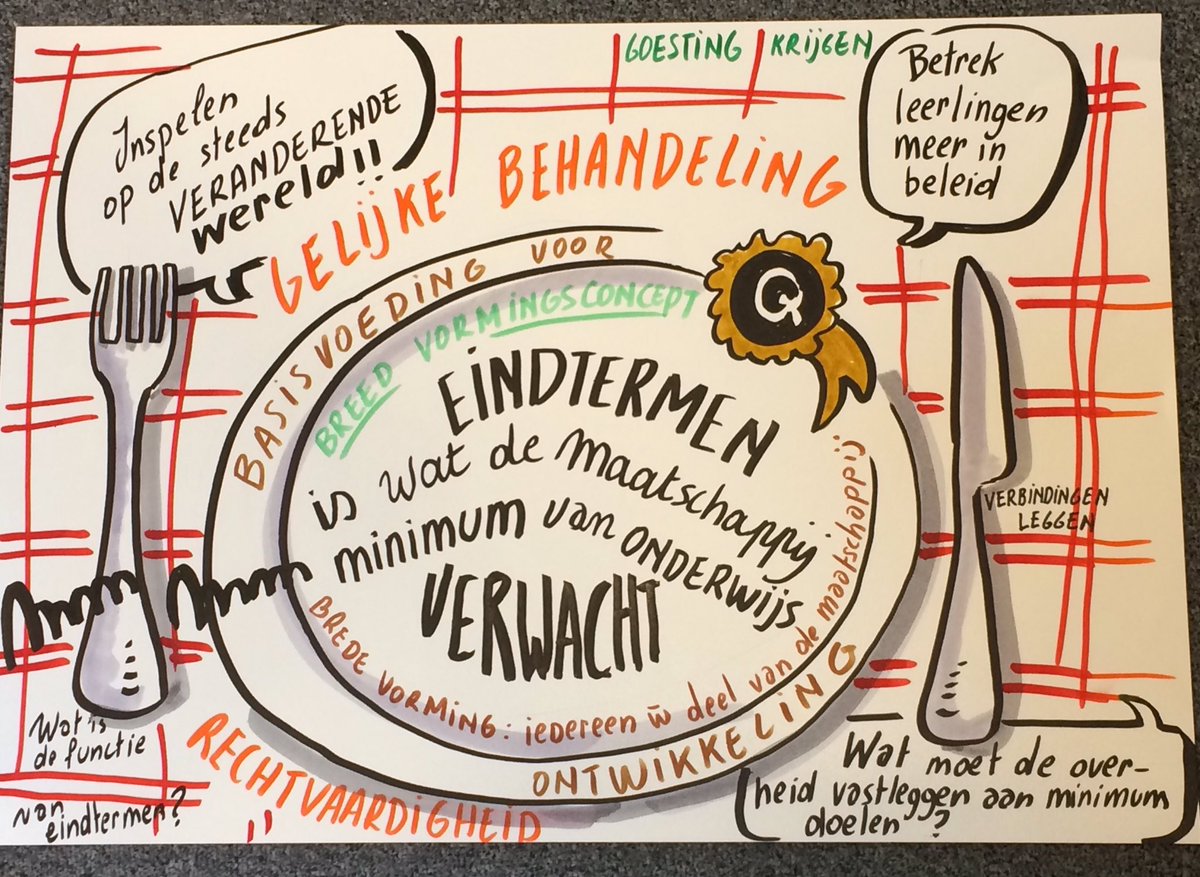 Inspelen
op de steeds
VERANDERENDE
wereld!!
GOESTING KRIJGEN
Betrek
leerlingen
meer in
beleid
GELIJKE BEHANDELING
BASISVOEDING VOOR
ONTWIKKELING
BREED VORMINGSCONCEPT
Q
EINDTERMEN
is wat de maatschappij
minimum van ONDERWIJS
VERWACHT
BREDE VORMING: iedereen w deel van de meetschappij
VERBINDINGEN
LEGGEN
mmm mmm
Wat is
de functie
van
eindtermen?
RECHTVAARDIGHEID
Wat moet de over-
heid vastleggen aan minimum
doelen?